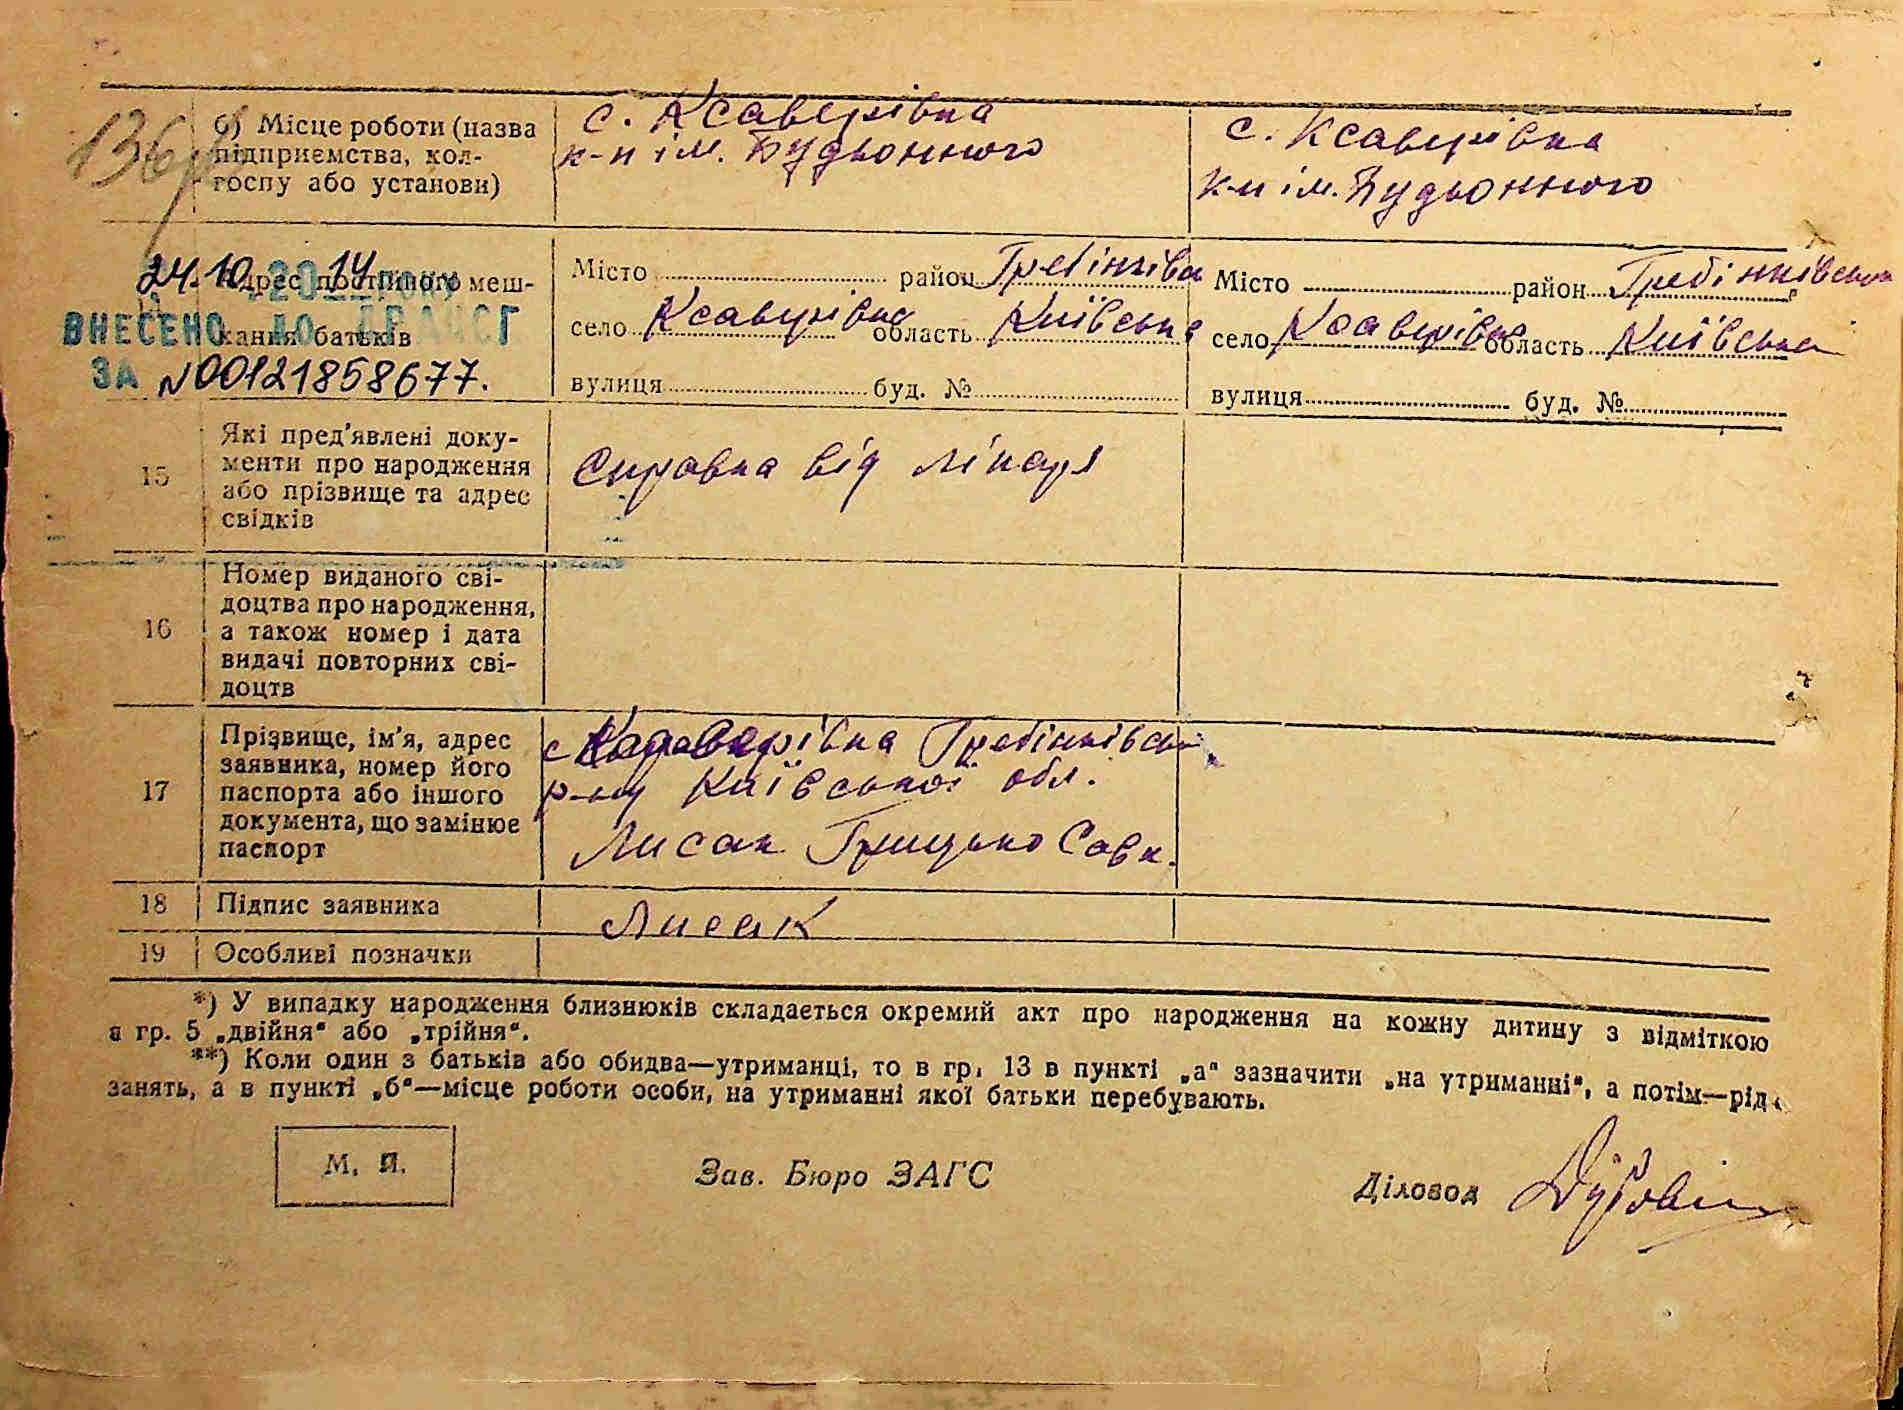 136
б) Місце роботи (назва підприємства, колгоспу або установи)
с. Ксаверівка
к-п ім. Будьонного
с. Ксаверівка
к-п ім. Будьонного
24.10.2014 року
ВНЕСЕНО ДО ДРАЦСГ
ЗА N00121858677.
Адрес постійного меш-
кання батьків
Місто район Гребінківськ
село Ксаверівка область Київська
вулиця буд. №
Місто район Гребінківськ
село Ксаверівка область Київська
вулиця буд. №
15
Які пред'явлені доку-
менти про народження
або прізвище та адрес
свідків
Справка від лікаря
16
Номер виданого сві-
доцтва про народження,
а також номер і дата
видачі повторних сві-
доцтв
17
Прізвище, ім'я, адрес
заявника, номер його
паспорта або іншого
документа, що замінює
паспорт
с Ксаверівка Гребінківськ
р-ну Київської обл.
Лисак Грицько Савк.
18 Підпис заявника
Лисак
19 Особливі позначки
*) У випадку народження близнюків складається окремий акт про народження на кожну дитину з відміткою
в гр. 5 „двійня“ або „трійня“.
**) Коли один з батьків або обидва—утриманці, то в гр. 13 в пункті „а“ зазначити „на утриманні“, а потім—рід
занять, а в пункті „б“—місце роботи особи, на утриманні якої батьки перебувають.
М. П.
Зав. Бюро ЗАГС
Діловод